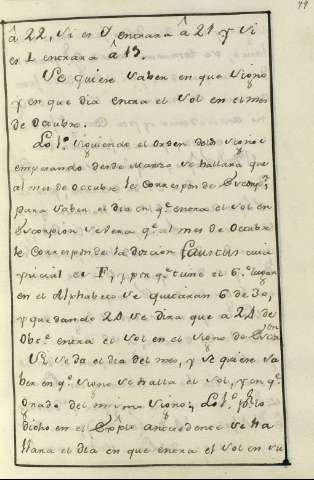 99
â 22, si es J, entrara â 21 y si
es L entrara â 19.
Se quiere saber en que signo
y en que dia entra el Sol en el mes
de Octubre.
Lo 1.º siguiendo el orden dels signos
empezando desde Marzo se hallara que
al mes de Octubre le corresponde Escorpn.
para saber el dia en q.e entra el Sol en
Escorpion se vera q.e al mes de Octubre
le corresponde la diccion Faustus cuia
inicial es F, y por q.e tiene el 6.º lugar
en el Alphabeto se quitaran 6 de 30,
y quedando 24 se dira que a 24 de
Obt.e entra el Sol en el signo de Escorn.
Si se da el dia del mes, y se quiere sa
ber en q.e signo se halla el Sol, y en q.e
grado del mismo signo; Lo 1.º por lo
dicho en el Expl.o antecedente se ha
llara el dia en que entra el Sol en su